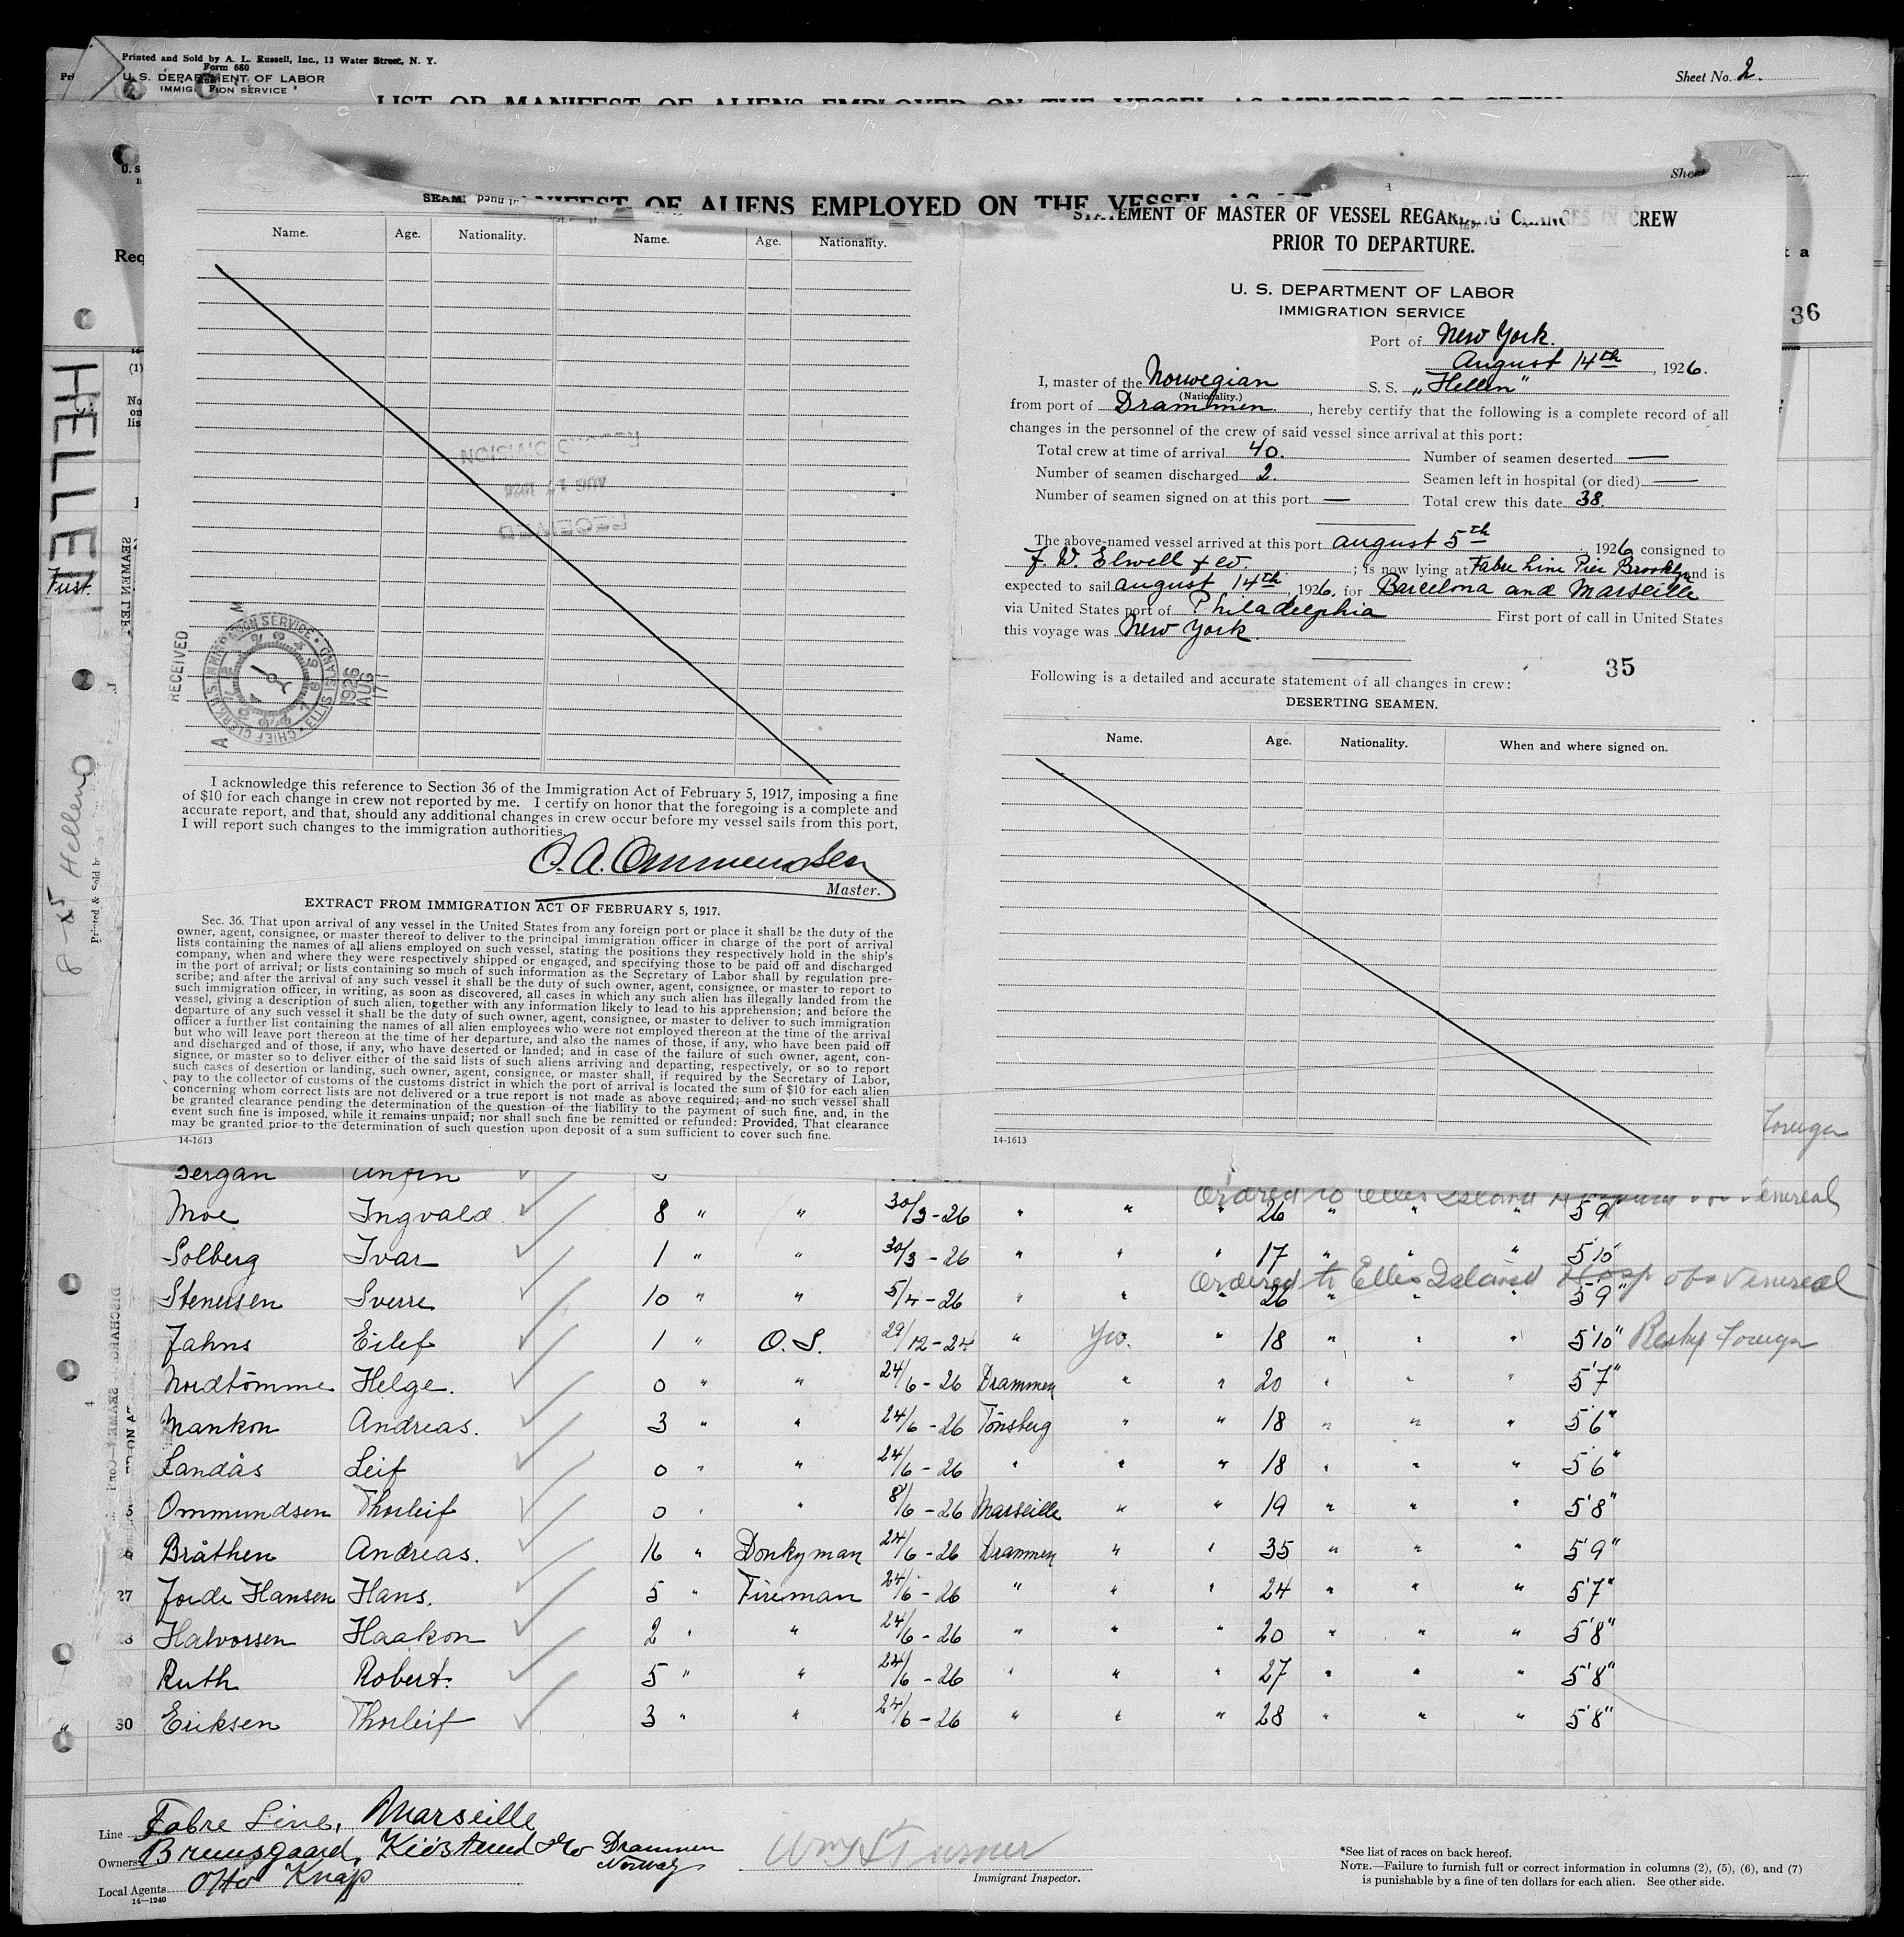 Printed and Sold by A. L. Russell, Inc., 13 Water Street, N. Y.
Form 680
U. S. DEPARTMENT OF LABOR
IMMIGRATION SERVICE
Sheet No. 2.
LIST OR MANIFEST OF ALIENS EMPLOYED ON THE VESSEL AS MEMBERS OF CREW
Sheet
MANIFEST OF ALIENS EMPLOYED ON THE VESSEL AS
Req
36
HELLEN
First
8-25 Hellen
Name. Age. Nationality. Name. Age. Nationality.
RECEIVED
AUG 17 1926
RECEIVED
CHIEF CLERK U.S. IMMIGRATION SERVICE • ELLIS ISLAND
1926 AUG 17
I acknowledge this reference to Section 36 of the Immigration Act of February 5, 1917, imposing a fine
of $10 for each change in crew not reported by me. I certify on honor that the foregoing is a complete and
accurate report, and that, should any additional changes in crew occur before my vessel sails from this port,
I will report such changes to the immigration authorities.
O. A. Ommundsen
Master.
EXTRACT FROM IMMIGRATION ACT OF FEBRUARY 5, 1917.
Sec. 36. That upon arrival of any vessel in the United States from any foreign port or place it shall be the duty of the
owner, agent, consignee, or master thereof to deliver to the principal immigration officer in charge of the port of arrival
lists containing the names of all aliens employed on such vessel, stating the positions they respectively hold in the ship's
company, when and where they were respectively shipped or engaged, and specifying those to be paid off and discharged
in the port of arrival; or lists containing so much of such information as the Secretary of Labor shall by regulation pre-
scribe; and after the arrival of any such vessel it shall be the duty of such owner, agent, consignee, or master to report to
such immigration officer, in writing, as soon as discovered, all cases in which any such alien has illegally landed from the
vessel, giving a description of such alien, together with any information likely to lead to his apprehension; and before the
departure of any such vessel it shall be the duty of such owner, agent, consignee, or master to deliver to such immigration
officer a further list containing the names of all alien employees who were not employed thereon at the time of the arrival
but who will leave port thereon at the time of her departure, and also the names of those, if any, who have been paid off
and discharged and of those, if any, who have deserted or landed; and in case of the failure of such owner, agent, con-
signee, or master so to deliver either of the said lists of such aliens arriving and departing, respectively, or so to report
such cases of desertion or landing, such owner, agent, consignee, or master shall, if required by the Secretary of Labor,
pay to the collector of customs of the customs district in which the port of arrival is located the sum of $10 for each alien
concerning whom correct lists are not delivered or a true report is not made as above required; and no such vessel shall
be granted clearance pending the determination of the question of the liability to the payment of such fine, and, in the
event such fine is imposed, while it remains unpaid; nor shall such fine be remitted or refunded: Provided, That clearance
may be granted prior to the determination of such question upon deposit of a sum sufficient to cover such fine.
14-1613
STATEMENT OF MASTER OF VESSEL REGARDING CHANGES IN CREW
PRIOR TO DEPARTURE.
U. S. DEPARTMENT OF LABOR
IMMIGRATION SERVICE
Port of New York.
August 14th, 1926.
I, master of the Norwegian S. S. „Hellen"
(Nationality.)
from port of Drammen, hereby certify that the following is a complete record of all
changes in the personnel of the crew of said vessel since arrival at this port:
Total crew at time of arrival 40. Number of seamen deserted —
Number of seamen discharged 2. Seamen left in hospital (or died) —
Number of seamen signed on at this port — Total crew this date 38.
The above-named vessel arrived at this port august 5th 1926 consigned to
J. W. Elwell & co. ; is now lying at Fabre Line Pier Brooklyn and is
expected to sail august 14th, 1926. for Barcelona and Marseille
via United States port of Philadelphia First port of call in United States
this voyage was New York
35
Following is a detailed and accurate statement of all changes in crew:
DESERTING SEAMEN.
Name. Age. Nationality. When and where signed on.
14-1613
Foreign
Ordered to Ellis Island Venereal
Moe Ingvald 8 " " 30/3-26 " " " 26 " " " 5'9"
Solberg Ivar 1 " " 30/3-26 " " " 17 " " " 5'10"
Ordered to Ellis Island Hosp obs Venereal
Stenersen Sverre 10 " " 5/4-26 " " " 26 " " " 5'9"
Jahns Eilef 1 " O.S. 29/12-24 " Yes. " 18 " " " 5'10" Reship Foreign
Nordtömme Helge. 0 " " 24/6-26 Drammen " " 20 " " " 5'7"
Mankon Andreas. 3 " " 24/6-26 Tönsberg " " 18 " " " 5'6"
Landås Leif 0 " " 24/6-26 " " " 18 " " " 5'6"
5 Ommundsen Thorleif 0 " " 8/6-26 Marseille " " 19 " " " 5'8"
26 Bråthen Andreas. 16 " Donkyman 24/6-26 Drammen " " 35 " " " 5'9"
27 Jorde Hansen Hans. 5 " Fireman 24/6-26 " " " 24 " " " 5'7"
28 Halvorsen Haakon 2 " " 24/6-26 " " " 20 " " " 5'8"
29 Ruth Robert. 5 " " 24/6-26 " " " 27 " " " 5'8"
30 Eriksen Thorleif 3 " " 24/6-26 " " " 28 " " " 5'8"
Line Fabre Line, Marseille
Owners Bruusgaard, Kiösterud & Co Drammen Norway
Local Agents Otto Knap
14-1240
Wm H Turner
Immigrant Inspector.
*See list of races on back hereof.
NOTE.—Failure to furnish full or correct information in columns (2), (5), (6), and (7)
is punishable by a fine of ten dollars for each alien. See other side.